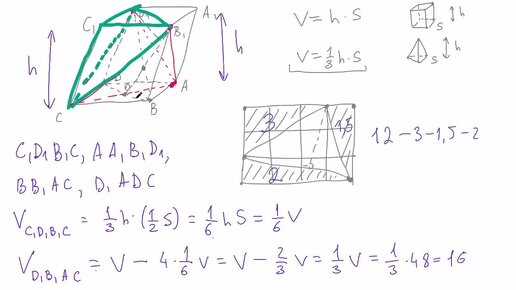 C₁ D₁ A₁
B₁
h h
D A
C B
V = h · S
V = 1/3 h · S
h S
h S
3 1,5
-5
2
12 - 3 - 1,5 - 2
C₁D₁B₁C, AA₁B₁D₁,
BB₁AC, D₁ADC
V_C₁D₁B₁C = 1/3 h · (1/2 S) = 1/6 hS = 1/6 V
V_D₁B₁AC = V - 4 · 1/6 V = V - 2/3 V = 1/3 V = 1/3 · 48 = 16